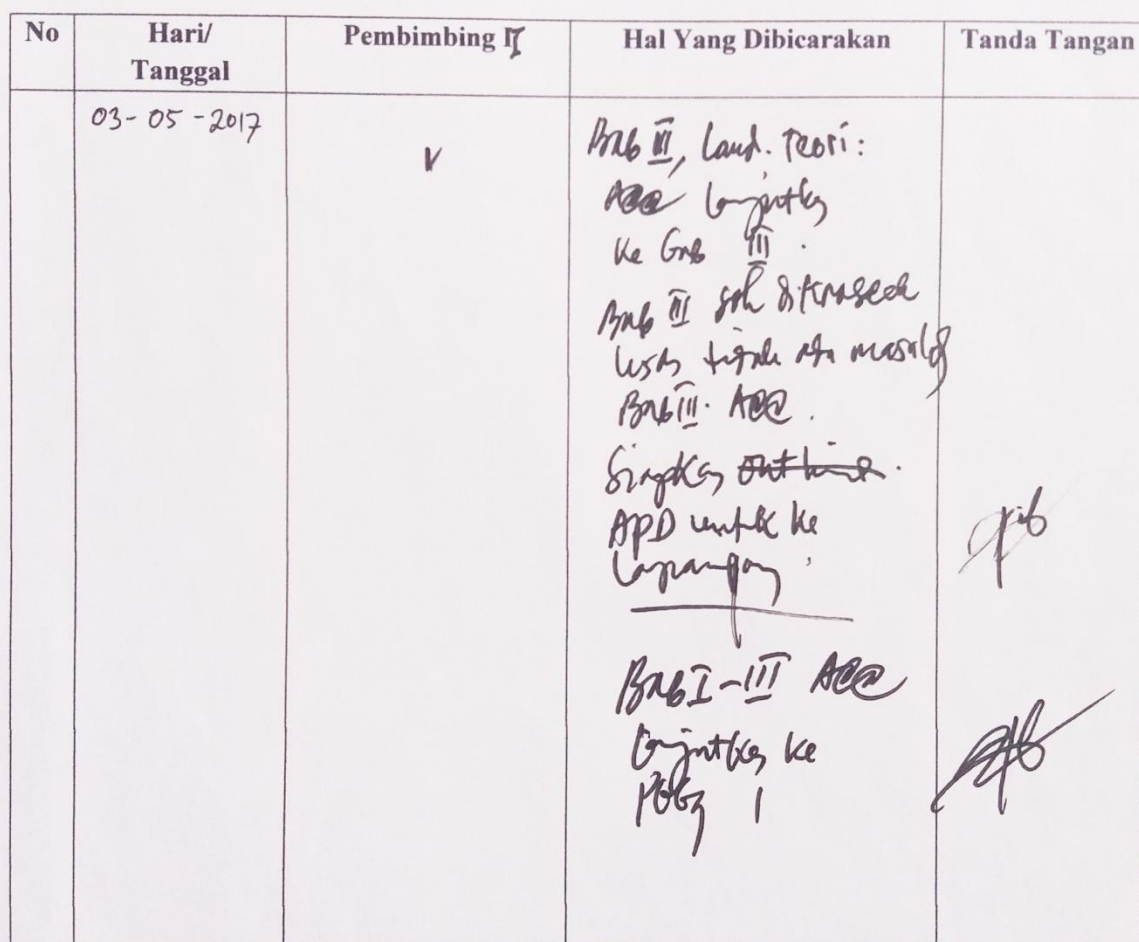 No
Hari/
Tanggal
Pembimbing II
Hal Yang Dibicarakan
Tanda Tangan
03-05-2017
V
Bab III, Land. Teori:
Acc lanjutkan
ke Bab III.
Bab III
tidak ada masalah
Bab III. Acc.
Singkat outline.
APD untuk ke
lapangan
Bab I-III Acc
lanjutkan ke
1